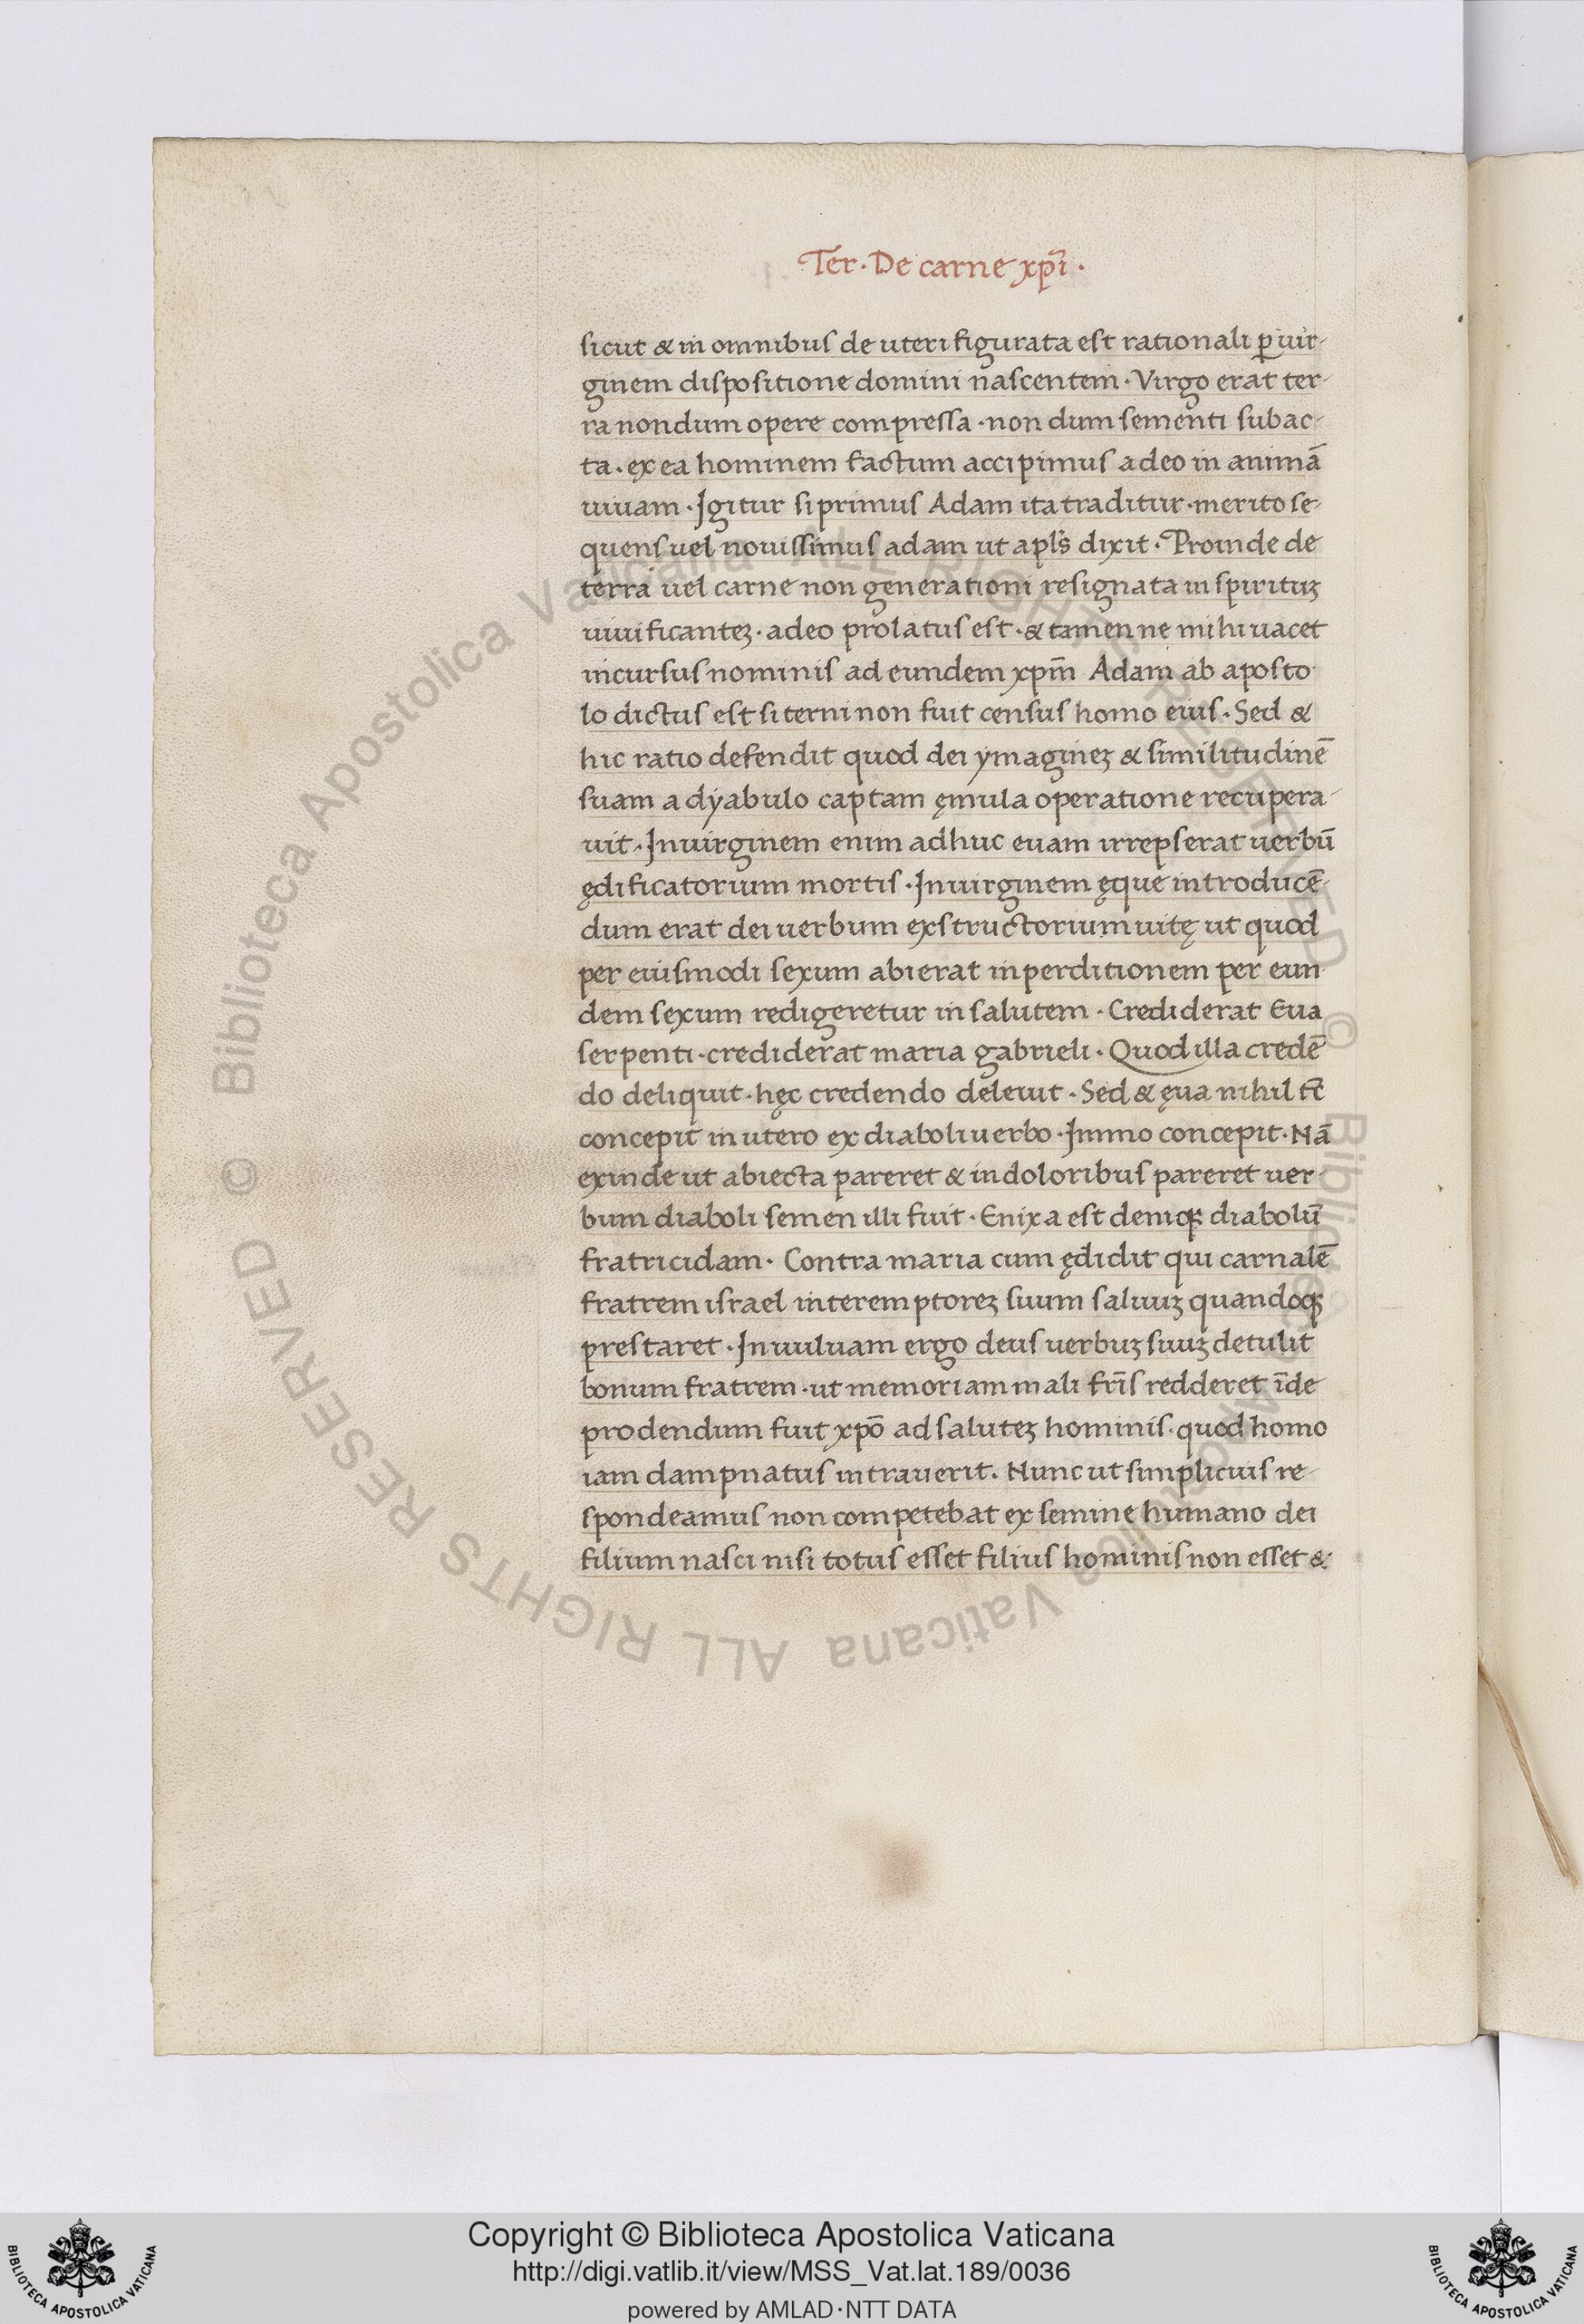 Ter · De carne xp̄i ·
sicut & in omnibus de uteri figurata est rationali ꝑ uir-
ginem dispositione domini nascentem · Virgo erat ter-
ra nondum opere compressa · non dum sementi subac-
ta · ex ea hominem factum accipimus a deo in animā
uiuam · Igitur si primus Adam ita traditur · merito se-
quens uel nouissimus adam ut apl̄s dixit · Proinde de
terra uel carne non generationi resignata in spirituꝫ
uiuificanteꝫ · a deo prolatus est · & tamen ne mihi uacet
incursus nominis ad eundem xp̄m Adam ab aposto
lo dictus est si terni non fuit census homo eius · Sed &
hic ratio defendit quod dei ymagineꝫ & similitudinē
suam a dyabulo captam ęmula operatione recupera-
uit · In uirginem enim adhuc euam irrepserat uerbū
ędificatorium mortis · In uirginem ęque introducē-
dum erat dei uerbum exstructorium uitę ut quod
per eiusmodi sexum abierat in perditionem per eun
dem sexum redigeretur in salutem · Crediderat Eua
serpenti · crediderat maria gabrieli · Quod illa credē
do deliquit · hęc credendo deleuit · Sed & ęua nihil tc̄
concepit in utero ex diaboli uerbo · Immo concepit · Nā
exinde ut abiecta pareret & in doloribus pareret uer-
bum diaboli semen illi fuit · Enixa est deniqꝫ diabolū
fratricidam · Contra maria cum ędidit qui carnalē
fratrem israel interemptoreꝫ suum saluuꝫ quandoqꝫ
prestaret · In uuluam ergo deus uerbuꝫ suuꝫ detulit
bonum fratrem · ut memoriam mali fr̄is redderet īde
prodendum fuit xp̄o ad saluteꝫ hominis · quod homo
iam dampnatus intrauerit. Nunc ut simplicius re-
spondeamus non competebat ex semine humano dei
filium nasci nisi totus esset filius hominis non esset &
© Biblioteca Apostolica Vaticana ALL RIGHTS RESERVED © Biblioteca Apostolica Vaticana ALL RIGHTS RESERVED
Copyright © Biblioteca Apostolica Vaticana
http://digi.vatlib.it/view/MSS_Vat.lat.189/0036
powered by AMLAD·NTT DATA
BIBLIOTECA APOSTOLICA VATICANA
BIBLIOTECA APOSTOLICA VATICANA